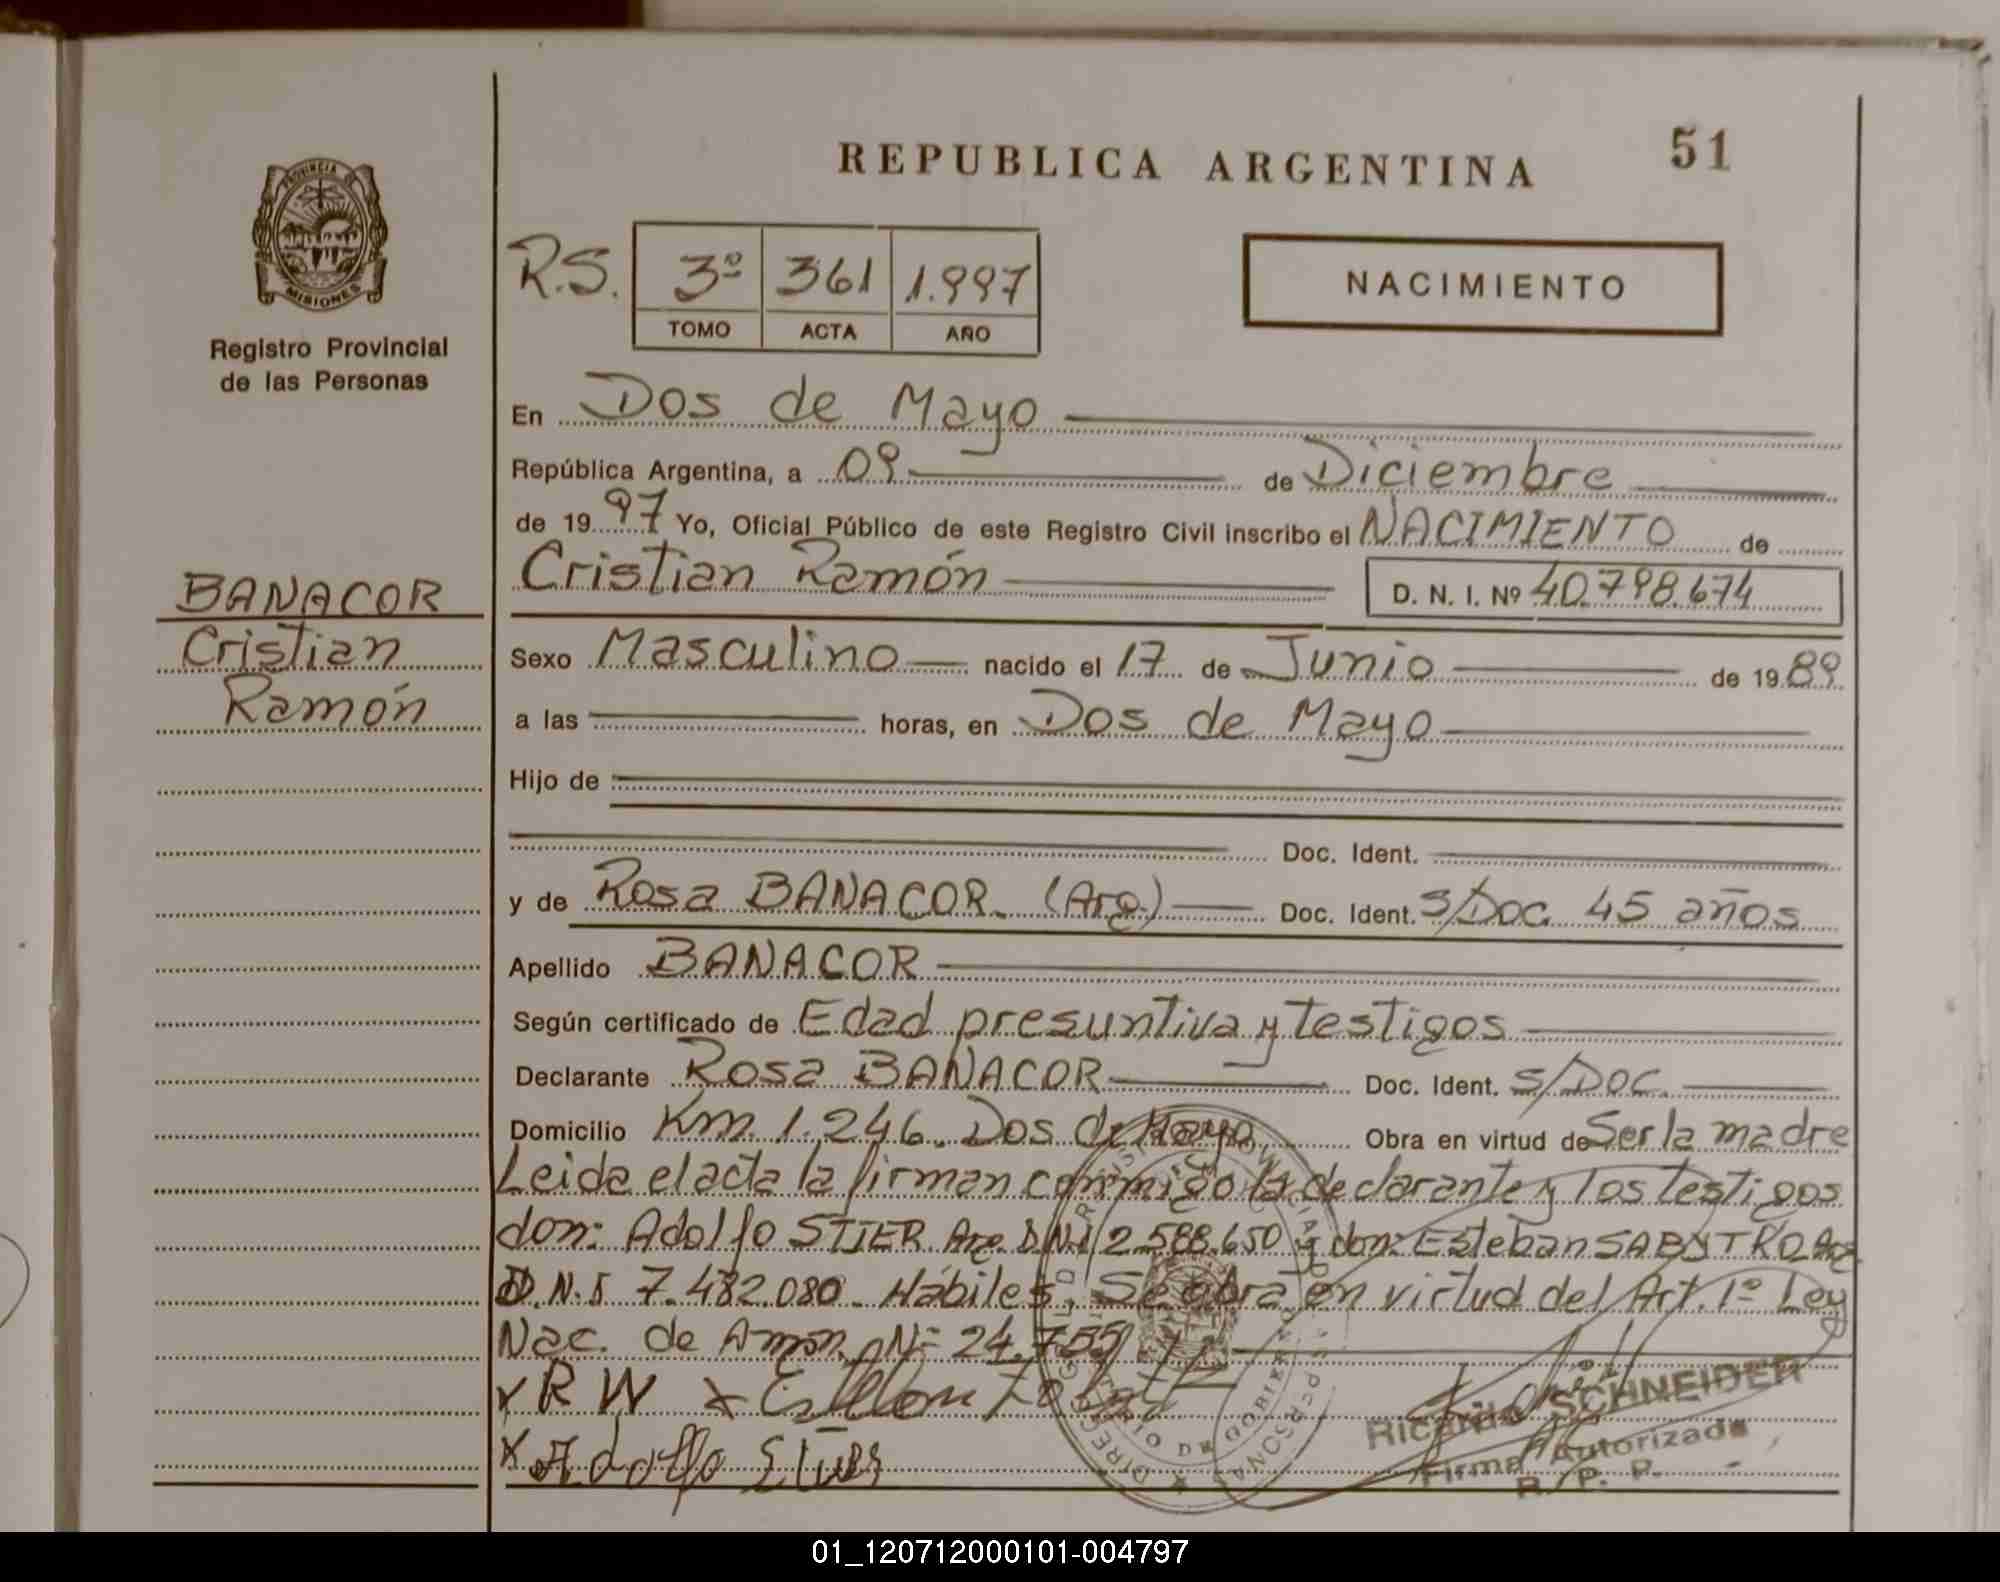 REPUBLICA ARGENTINA 51
PROVINCIA DE
MISIONES
Registro Provincial
de las Personas
R.S. 3º 361 1.997
TOMO ACTA AÑO
NACIMIENTO
En Dos de Mayo
República Argentina, a 09 de Diciembre
de 1997 Yo, Oficial Público de este Registro Civil inscribo el NACIMIENTO de
Cristian Ramón D. N. I. Nº 40.798.674
BANACOR
Cristian
Ramón
Sexo Masculino nacido el 17 de Junio de 1989
a las horas, en Dos de Mayo
Hijo de
Doc. Ident.
y de Rosa BANACOR. (Arg.) Doc. Ident. S/Doc. 45 años
Apellido BANACOR
Según certificado de Edad presuntiva y testigos
Declarante Rosa BANACOR Doc. Ident. S/DOC.
Domicilio Km. 1.246. Dos de Mayo Obra en virtud de Ser la madre
Leida el acta la firman conmigo la declarante y los testigos
don: Adolfo STIER Arg. D.N.I 2.588.650 y don: Esteban Arg.
D.N.I 7.482.080. Hábiles. Se obra en virtud del Art. 1º Ley
Nac. de Amn. Nº 24.755
x R W x
x Adolfo
Ricardo SCHNEIDER
Firma Autorizada
R. P. P.
01_120712000101-004797